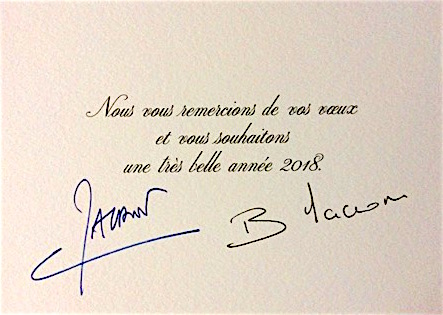 Nous vous remercions de vos vœux
et vous souhaitons
une très belle année 2018.
B Macron